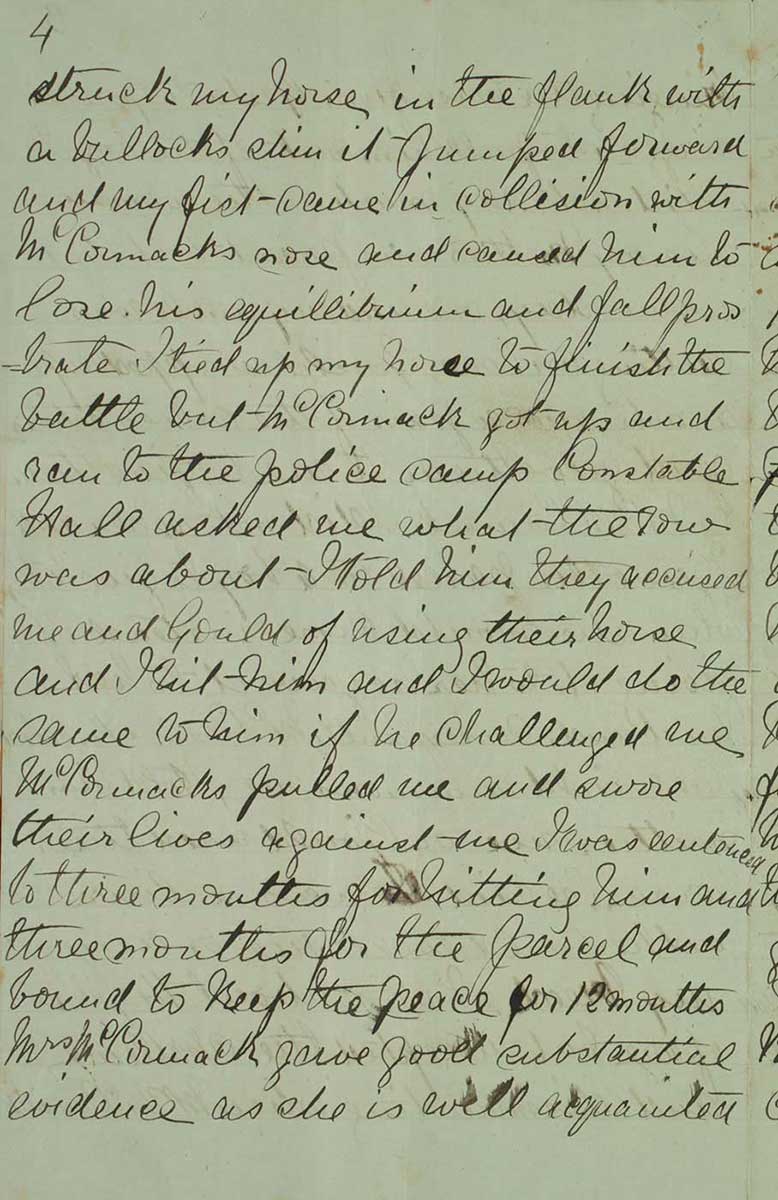 4
struck my horse in the flank with
a bullocks shin it jumped forward
and my fist came in collision with
McCormacks nose and caused him to
lose his equillibrium and fall pros
=trate I tied up my horse to finish the
battle but McCormack got up and
ran to the police camp Constable
Hall asked me what the row
was about I told him they accused
me and Gould of using their horse
and I hit him and I would do the
same to him if he challenged me
McCormacks pulled me and swore
their lives against me I was sentenced
to three months for hitting him and
three months for the parcel and
bound to keep the peace for 12 months
Mrs McCormack gave good substantial
evidence as she is well acquainted